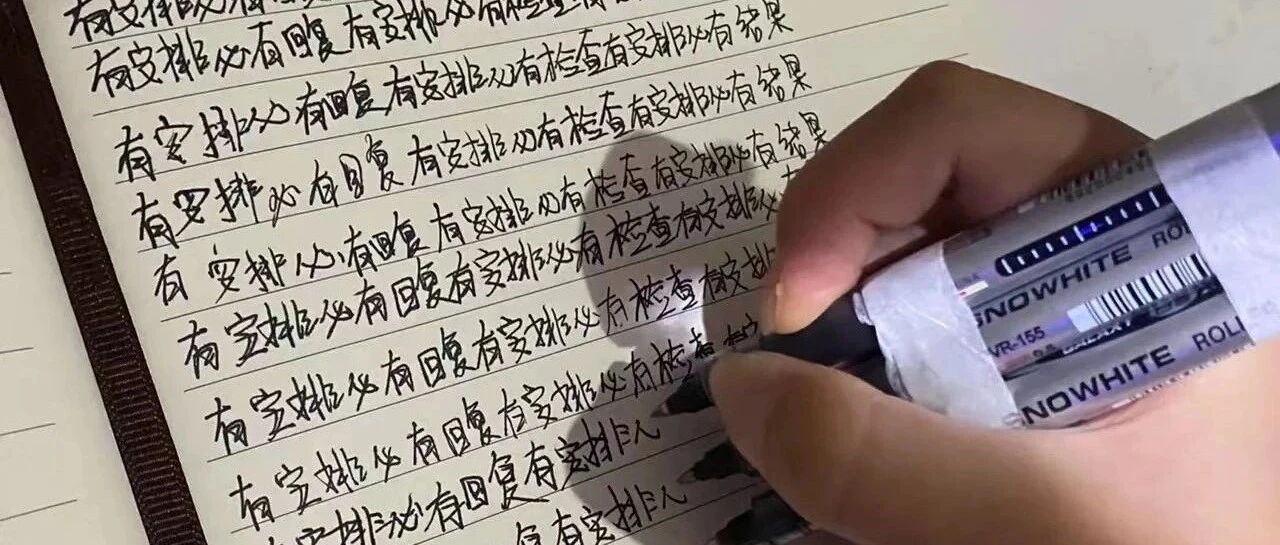 有安排必有回复有安排必有检查
有安排必有回复有安排必有检查有安排必有结果
有安排必有回复有安排必有检查有安排必有结果
有安排必有回复有安排必有检查有安排必有结果
有安排必有回复有安排必有检查有安排必有结果
有安排必有回复有安排必有检查有安排必
有安排必有回复有安排必有检查有安排
有安排必有回复有安排必有检查安
有安排必有回复有安排
安排必有回复有安排
复有安排
SNOWHITE ROLL
VR-155
0.5
SNOWHITE ROLL